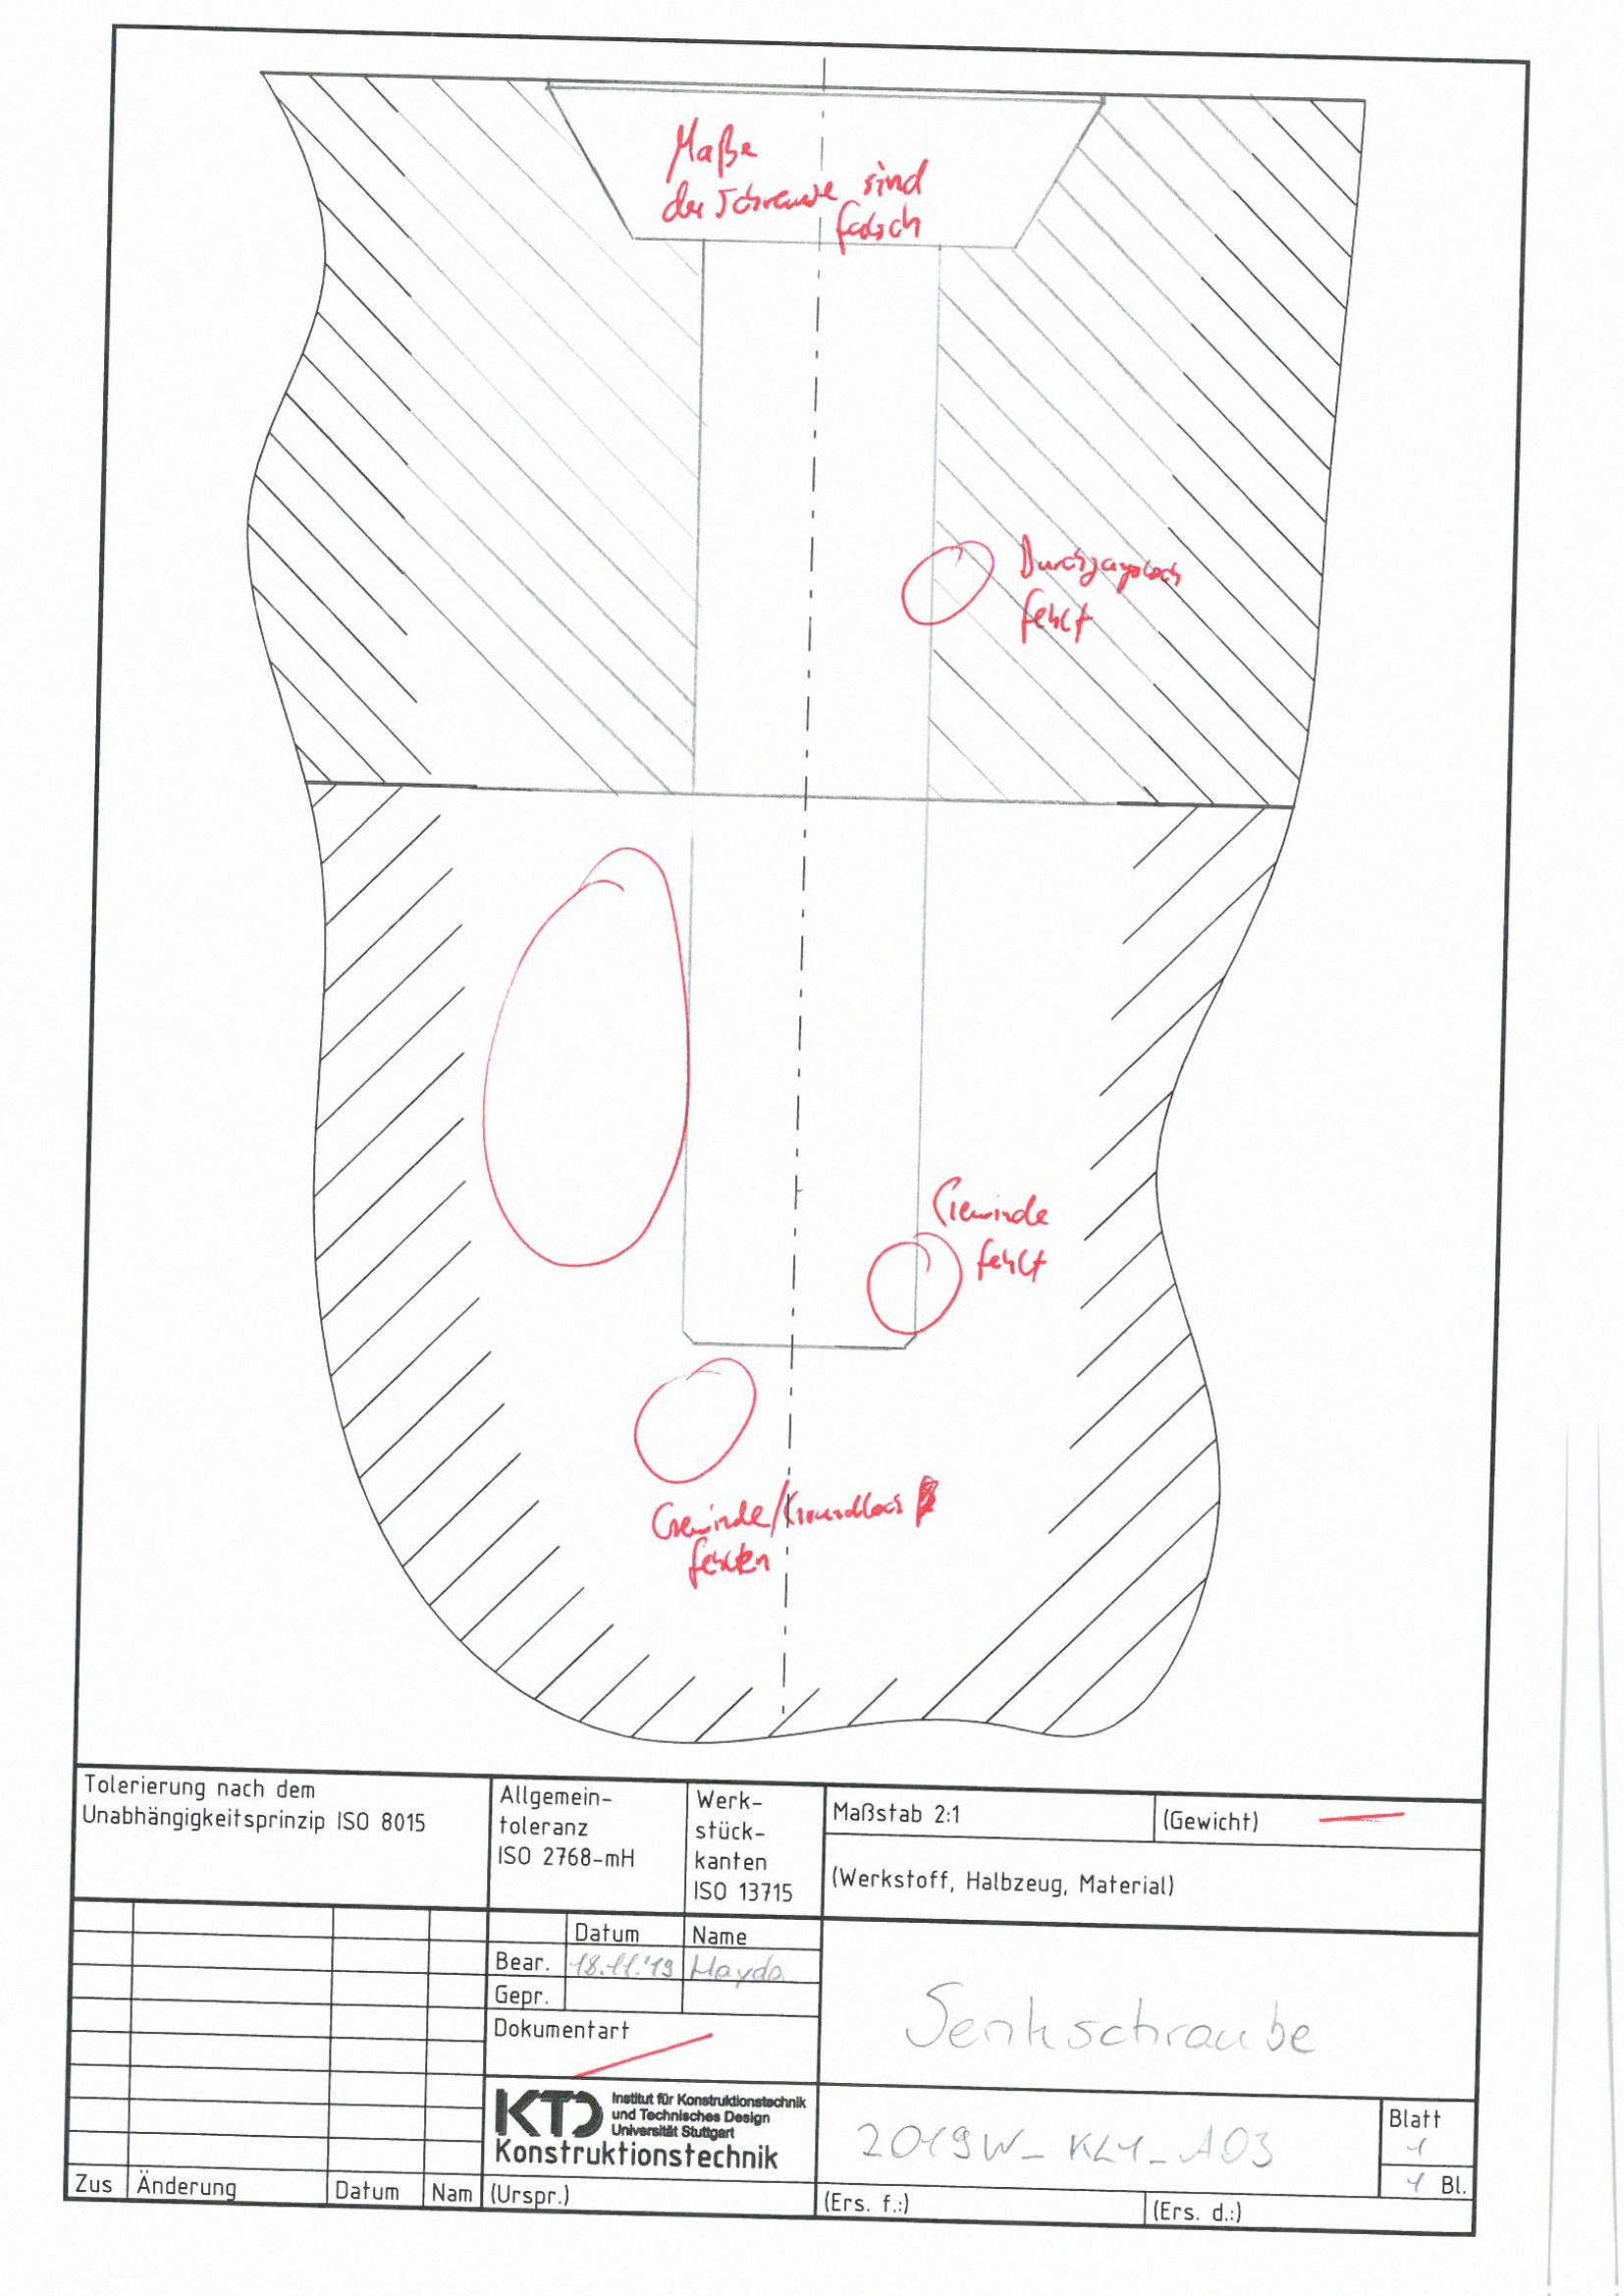 Maße
der Schraube sind
falsch
Durchgangsloch
fehlt
Gewinde
fehlt
Gewinde/Grundloch
fehlen
Tolerierung nach dem
Unabhängigkeitsprinzip ISO 8015
Allgemein-
toleranz
ISO 2768-mH
Werk-
stück-
kanten
ISO 13715
Maßstab 2:1
(Gewicht)
(Werkstoff, Halbzeug, Material)
Datum
Name
Bear.
18.11.'19
Gepr.
Dokumentart
Senkschraube
KTD
Institut für Konstruktionstechnik
und Technisches Design
Universität Stuttgart
Konstruktionstechnik
2019W_KL1_A03
Blatt
1
1 Bl.
Zus
Änderung
Datum
Nam
(Urspr.)
(Ers. f.:)
(Ers. d.:)